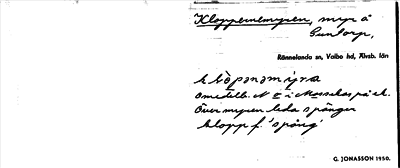 Kloppenemyren, myr å
Guntorp,
Rännelanda sn, Valbo hd, Älvsb. län
klöpanamýra
Omedelb. N E i
Över myren leda spänger
klopp f. 'spång'
G. JONASSON 1930.